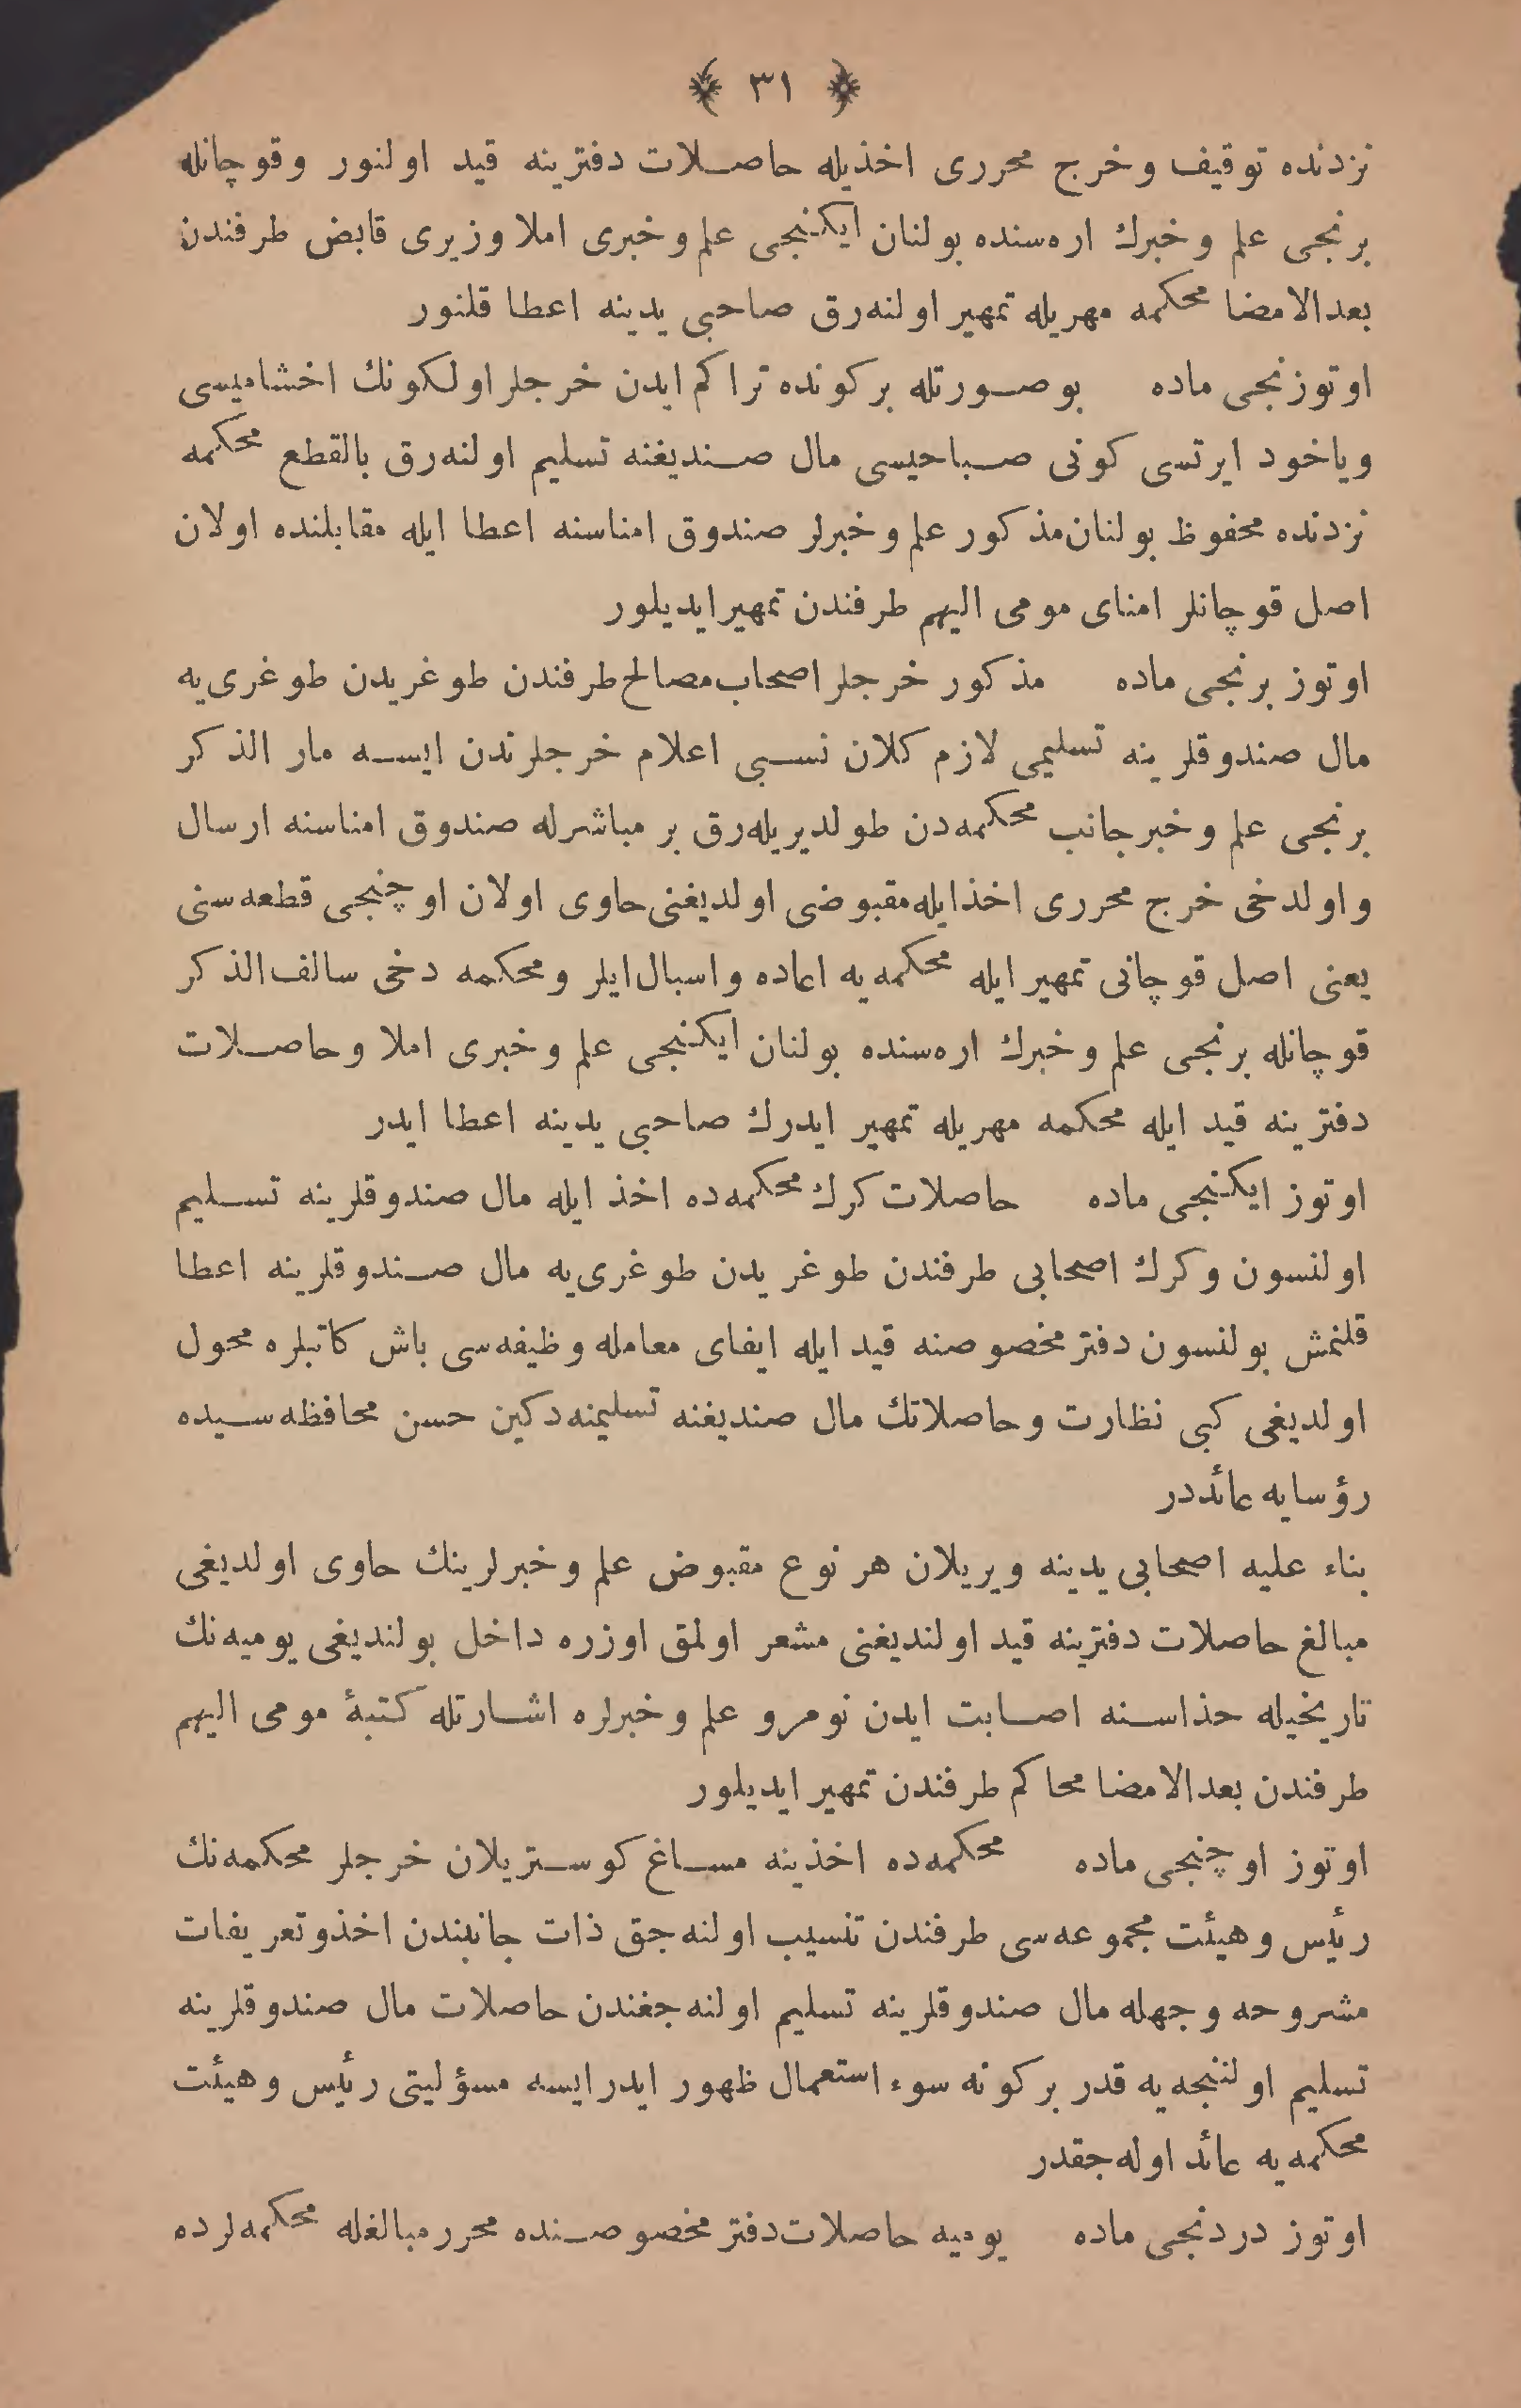 ﴿ ٣١ ﴾
نزدنده توقیف و خرج محرری اخذیله حاصلات دفترینه قید اولنور و قوچانله
برنجی علم و خبرك اره‌سنده بولنان ایكنجی علم و خبری املا و زیری قابض طرفندن
بعدالامضا محكمه مهریله تمهیر اولنه‌رق صاحبی یدینه اعطا قلنور
اوتوزنجی ماده بو صورتله بر كونده تراكم ایدن خرجلر اولكونك اخشامیسی
ویاخود ایرتسی كونی صباحیسی مال صندیغنه تسلیم اولنه‌رق بالقطع محكمه
نزدنده محفوظ بولنان مذكور علم و خبرلر صندوق امناسنه اعطا ایله مقابلنده اولان
اصل قوچانلر امنای مومی الیهم طرفندن تمهیر ایدیلور
اوتوز برنجی ماده مذكور خرجلر اصحاب مصالح طرفندن طوغریدن طوغری‌یه
مال صندوقلرینه تسلیمی لازم كلان نسبی اعلام خرجلرندن ایسه مار الذكر
برنجی علم و خبر جانب محكمه‌دن طولدیریله‌رق بر مباشرله صندوق امناسنه ارسال
و اولدخی خرج محرری اخذ ایله مقبوضی اولدیغنی حاوی اولان اوچنجی قطعه‌سنی
یعنی اصل قوچانی تمهیر ایله محكمه‌یه اعاده و اسبال ایلر و محكمه دخی سالف الذكر
قوچانله برنجی علم و خبرك اره‌سنده بولنان ایكنجی علم و خبری املا و حاصلات
دفترینه قید ایله محكمه مهریله تمهیر ایدرك صاحبی یدینه اعطا ایدر
اوتوز ایكنجی ماده حاصلات كرك محكمه‌ده اخذ ایله مال صندوقلرینه تسلیم
اولنسون و كرك اصحابی طرفندن طوغریدن طوغری‌یه مال صندوقلرینه اعطا
قلنمش بولنسون دفتر مخصوصنه قید ایله ایفای معامله وظیفه‌سی باش كاتبلره محول
اولدیغی كبی نظارت و حاصلاتك مال صندیغنه تسلیمنه‌دكین حسن محافظه‌سیده
رؤسایه عائددر
بناء علیه اصحابی یدینه ویریلان هر نوع مقبوض علم و خبرلرینك حاوی اولدیغی
مبالغ حاصلات دفترینه قید اولندیغنی مشعر اولمق اوزره داخل بولندیغی یومیه‌نك
تاریخیله حذاسنه اصابت ایدن نومرو علم و خبرلره اشارتله كتبۀ مومی الیهم
طرفندن بعدالامضا محاكم طرفندن تمهیر ایدیلور
اوتوز اوچنجی ماده محكمه‌ده اخذینه مساغ كوستریلان خرجلر محكمه‌نك
رئیس و هیئت مجموعه‌سی طرفندن تنسیب اولنه‌جق ذات جانبندن اخذ و تعریفات
مشروحه وجهله مال صندوقلرینه تسلیم اولنه‌جغندن حاصلات مال صندوقلرینه
تسلیم اولننجه‌یه قدر بر كونه سوء استعمال ظهور ایدر ایسه مسؤلیتی رئیس و هیئت
محكمه‌یه عائد اوله‌جقدر
اوتوز دردنجی ماده یومیه حاصلات دفتر مخصوصنده محرر مبالغله محكمه‌لرده